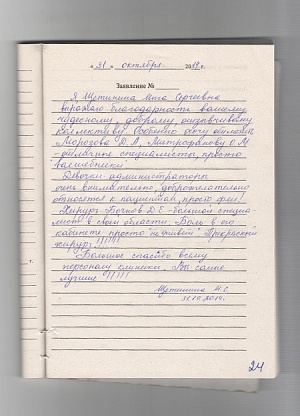 « 31 » октября 2014 г.
Заявление №
Я Щетинина Инга Сергеевна
выражаю благодарность вашему
чудесному, доброму, отзывчивому
коллективу. Особенно хочу отметить
Морозова Д.А, Митрофанову О.М
- отличные специалисты, просто
волшебники
Девочки-администраторы
очень внимательно, доброжелательно
относятся к пациентам, просто феи!
Хирург Бочков Д.Е - большой специа-
лист в своей области. Боль в его
кабинете просто не живёт. Прекрасный
хирург!!!!!!
Большое спасибо всему
персоналу клиники. Вы самые
лучшие !!!!!
Щетинина И.С.
31.10.2014.
24